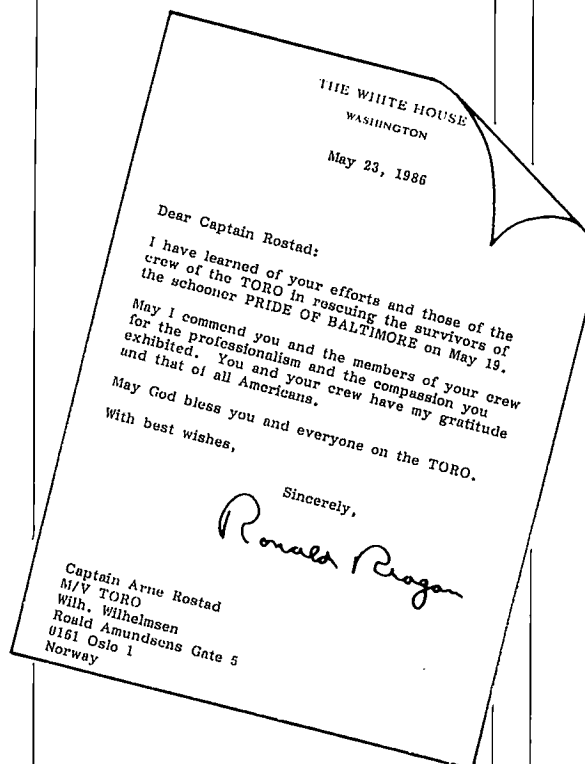 THE WHITE HOUSE
WASHINGTON
May 23, 1986
Dear Captain Rostad:
I have learned of your efforts and those of the
crew of the TORO in rescuing the survivors of
the schooner PRIDE OF BALTIMORE on May 19.
May I commend you and the members of your crew
for the professionalism and the compassion you
exhibited. You and your crew have my gratitude
and that of all Americans.
May God bless you and everyone on the TORO.
With best wishes,
Sincerely,
Ronald Reagan
Captain Arne Rostad
M/V TORO
Wilh. Wilhelmsen
Roald Amundsens Gate 5
0161 Oslo 1
Norway